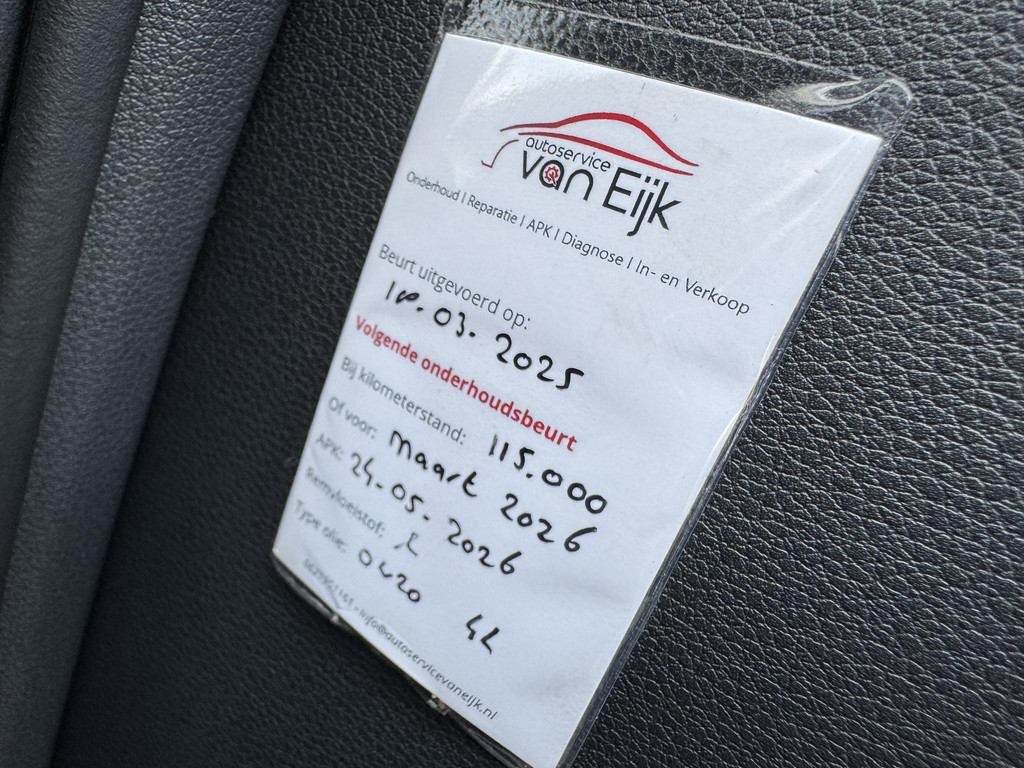 autoservice
van Eijk
Onderhoud | Reparatie | APK | Diagnose | In- en Verkoop
Beurt uitgevoerd op:
03. 2025
Volgende onderhoudsbeurt
Bij kilometerstand: 115.000
Of voor: Maart 2026
APK: 24-05-2026
Remvloeistof:
Type olie: 0w20 4L
info@autoservicevaneijk.nl